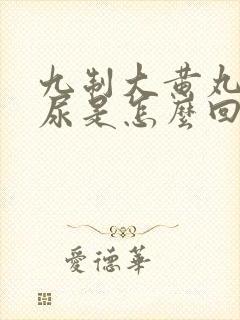 九制大黄丸
尿是怎麼回
愛德華